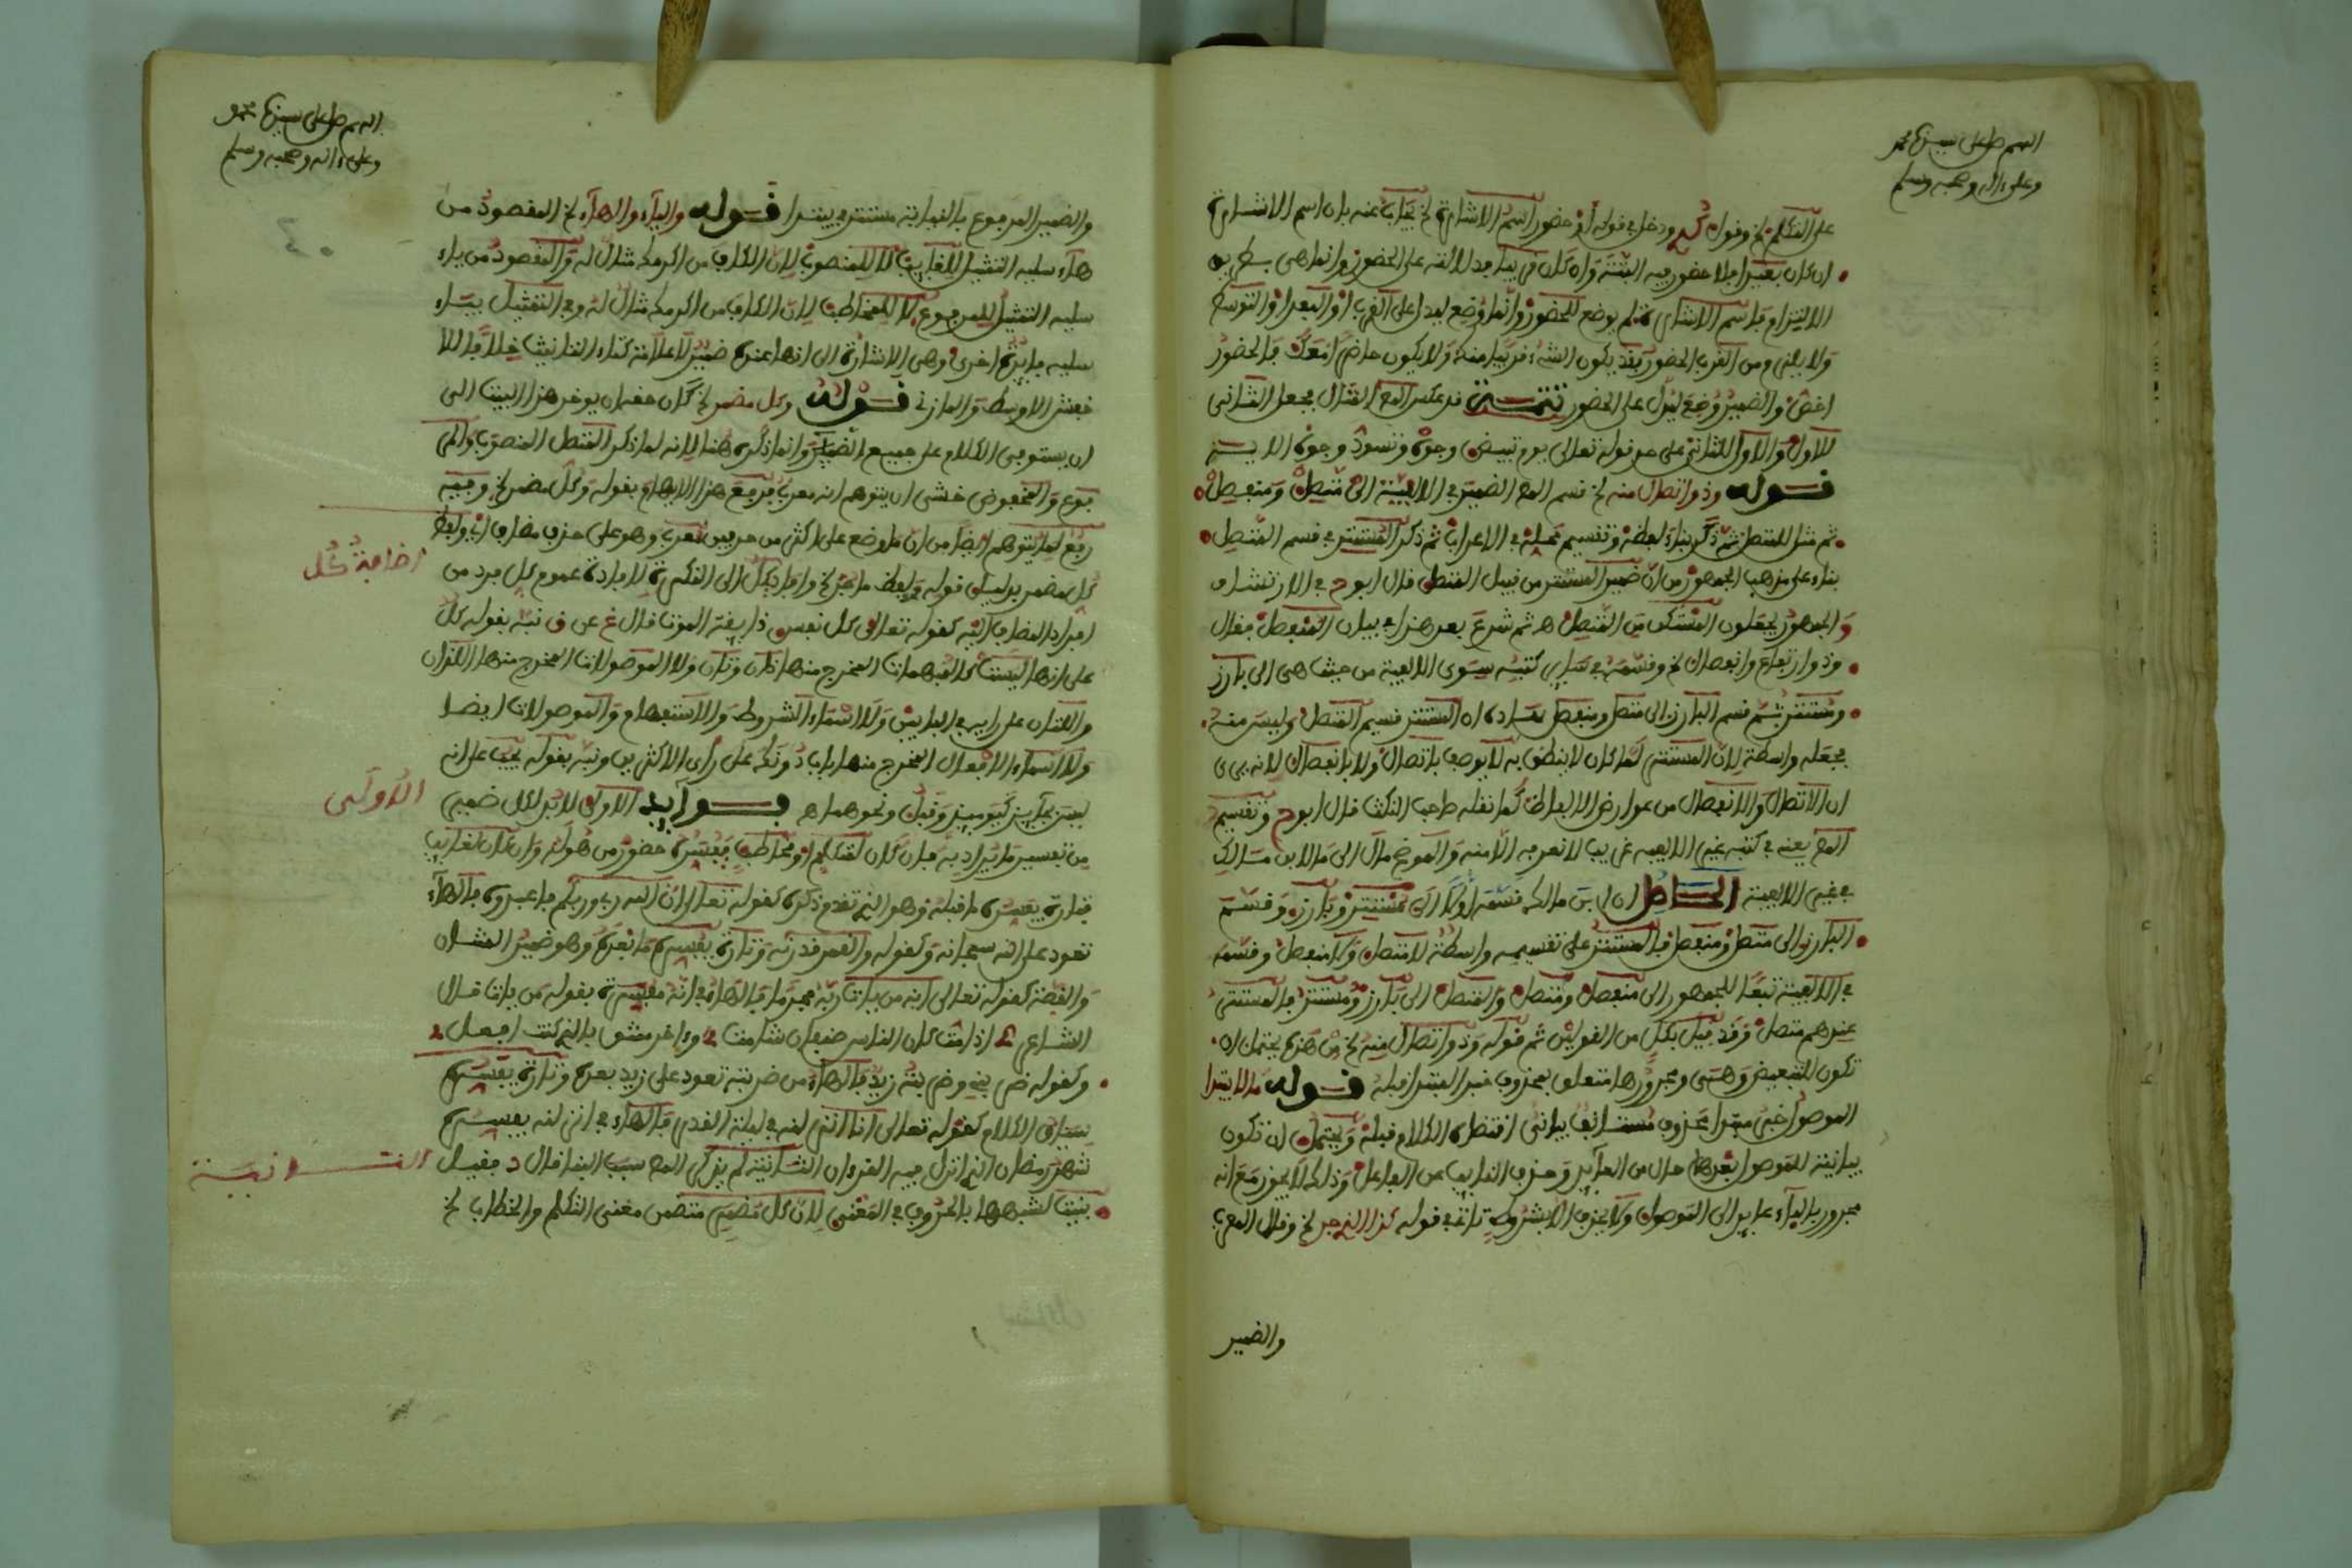 اللهم صل على سيدنا محمد
وعلى ءاله وصحبه وسلم
على التكلم لخ وقوله ودخل في قوله أو حضور اسم الاشارة لخ يجاب عنه بان اسم الاشارة
ان كان بعيدا فلا حضور فيه البتة وان كان قريبا فدلالته على الحضور وانما هي بطريق
الالتزام فاسم الاشارة لم يوضع للحضور وانما وضع ليدل على القرب أو البعد أو التوسط
ولا يلزم من القرب الحضور فقد يكون الشيء قريبا منك ولا يكون حاضرا معك فالحضور
اخص والضمير وضع ليدل على الحضور تتمة قد عكس المص المثال فجعل الثاني
للاول والاول للثاني على حد قوله تعالى يوم تبيض وجوه وتسود وجوه الاية
قوله وذو اتصال منه لخ قسم المص الضمير في الالفية الى متصل ومنفصل
ثم مثل للمتصل ثم ذكر بناء لفظه وتقسيم محله في الاعراب ثم ذكر المستتر في قسم المتصل
بناء على مذهب الجمهور من ان ضمير المستتر من قبيل المتصل قال ابو ح في الارتشاف
والجمهور يجعلون المستكن من المتصل هـ ثم شرع بعد هذا في بيان المنفصل فقال
وذو ارتفاع وانفصال لخ وقسمه في ساير كتبه سوى الالفية من حيث هي الى بارز
ومستتر ثم قسم البارز الى متصل ومنفصل المستتر قسيم المتصل وليس منه
فجعله واسطة لان المستتر لما كان لا ينطق به لا يوصف باتصال ولا بانفصال لانه يرى
ان الاتصال والانفصال من عوارض الالفاظ كما نقله صاحب النكت قال ابو ح وتقسيم
المص يعني في كتبه غير الالفية غريب لا نعرفه الا منه والموضح مال الى ما لابن مالك
في غير الالفية الحاصل ان ابن مالك قسمه اولا الى مستتر وبارز وقسم
البارز الى متصل ومنفصل فالمستتر على تقسيمه واسطة لا متصل ولا منفصل وقسمه
في الالفية تبعا للجمهور الى منفصل ومتصل والمتصل الى بارز ومستتر فالمستتر
عندهم متصل وقد قيل بكل من القولين ثم قوله وذو اتصال منه لخ من هذه يحتمل ان
تكون للتبعيض وهي ومجرورها متعلق بمحذوف خبر المبتدا قبله قوله ما لا يبتدا
الموصول خبر مبتدا محذوف مستانف بياني اقتضاه الكلام قبله ويحتمل ان تكون
بيانية للموصول بعدها حال من العائد وحذف النائب عن الفاعل وذلك لا يجوز مع انه
مجرور بالباء عايد الى الموصول ولا يحذف الا بشروط تاتي في قوله كذا الذي جر لخ وقال المعرب
والضمير
اللهم صل على سيدنا محمد
وعلى ءاله وصحبه وسلم
والضمير المرفوع بالنيابة مستتر في يبتدا قوله والياء والهاء لخ المقصود من
هاء سليه التمثيل للغايب لا للمنصوب لان الكاف من اكرمك مثال له والمقصود من ياء
سليه التمثيل للمرفوع لا للمخاطب لان الكاف من اكرمك مثال له وفي التمثيل بياء
سليه فائدة اخرى وهي الاشارة الى انها عنده ضمير لا علامة كتاء التانيث خلافا للا
خفش الاوسط والمازني قوله وكل مضمر لخ كان حقه ان يوخر هذا البيت الى
ان يستوفي الكلام على جميع الضماير وانما ذكره هنا لانه لما ذكر المتصل المنصوب والمر
فوع والمخفوض خشي ان يتوهم انه معرب فرفع هذا الابهام بقوله وكل مضمر لخ وفيه
رفع لما يتوهم ايضا من ان ما وضع على اكثر من حرفين معرب وهو على حذف مضاف اي ولفظ
كل مضمر بدليل قوله ولفظ ما جر لخ واضاف كل الى النكرة لافادة عموم كل فرد من
اضافة كل
افراد المضاف اليه كقوله تعالى كل نفس ذايقة الموت قال غ عن ق نبه بقوله كل
على انها ليست كالمبهمات المخرج منها ذان وتان ولا الموصولات المخرج منها اللذان
واللتان على رايه في البابين ولا اسماء الشروط والاستفهام والموصولات ايضا
ولا اسماء الافعال المخرج منها باب دونك على راى الاكثرين ونبه بقوله يجب على انه
ليس بجايز كيومئذ وقبل ونحوهما هـ فوايد الاولى لابد لكل ضمير
الاولى
من تفسير ما يراد به فان كان لمتكلم او مخاطب فيفسره حضور من هو له وان كان لغايب
فتارة يفسره ما قبله وهو الذي تقدم ذكره كقوله تعالى ان الله ربي وربكم فاعبدوه فالهاء
تعود على الله سبحانه وكقوله والقمر قدرناه وتارة يفسره ما بعده وهو ضمير الشان
والقصة كقوله تعالى انه من يات ربه مجرما فالهاء في انه مفسرة بقوله من يات قال
الشاعر اذا مت كان الناس صنفان شامت وءاخر مثن بالذي كنت افعل
وكقوله ضربني وضربته زيد فالهاء من ضربته تعود على زيد بعده وتارة يفسره
سياق الكلام كقوله تعالى انا انزلنه في ليلة القدر فالهاء في انزلنه يفسره
شهر رمضان الذي انزل فيه القرءان الثانية لم يذكر المص سبب البنا قال د فقيل
الثانية
بنيت لشبهها بالحروف في المعنى لان كل مضمر متضمن معنى التكلم والخطاب لخ